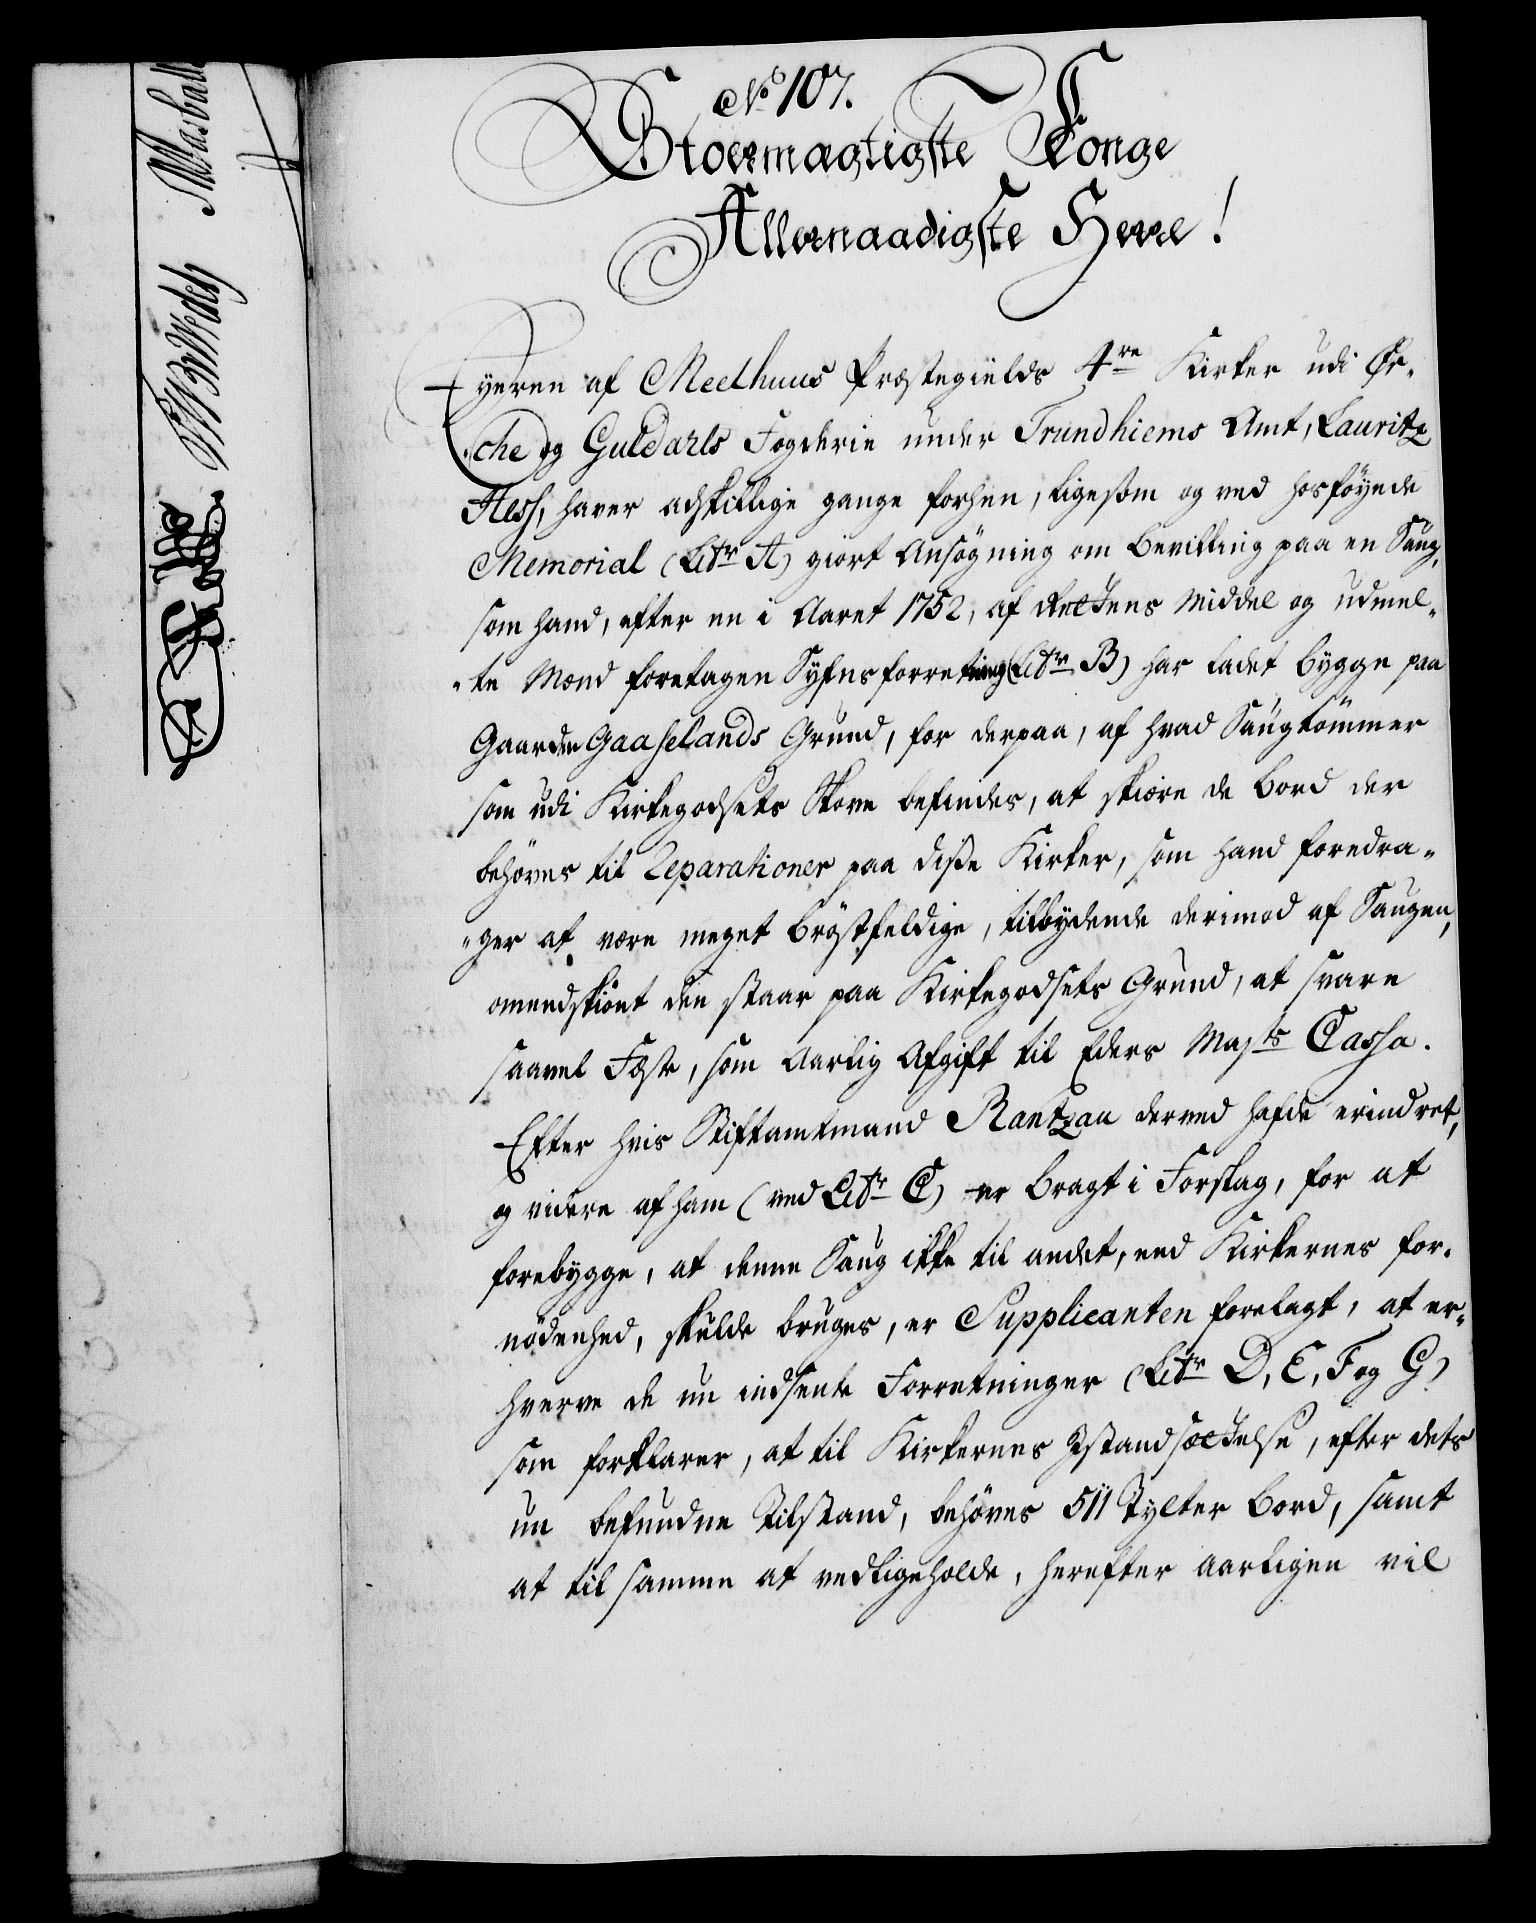 No 107.
Stoermægtigste Konge
Allernaadigste Herre!
Eyeren af Meelhuus Præstegields 4re Kirker udi Ør-
che og Guldahls Fogderie under Trundhiems Amt, Lauritz
Hess, haver adskillige gange forhen, ligesom og ved hosföyede
Memorial (Litr A) giort Ansögning om bevilling paa en Saug,
som hand, efter en i Aaret 1752, af Rettens Middel og udmel-
-te Mænd foretagen Syfnsforretning (Litr B) har ladet bygge paa
Gaarden Gaaselands Grund, for derpaa, af hvad Saugtömmer
som udi Kirkegodsets Skove befindes, at skiære de bord der
behöves til Reparationer paa disse Kirker, som hand foredra-
-ger at være meget bröstfeldige, tilbydende derimod af Saugen,
omendskiönt den staar paa Kirkegodsets Grund, at svare
saavel Fæste, som Aarlig Afgift til Eders Majts Cassa.
Efter hvis Stiftamtmand Rantzau derved hafde erindret,
og videre af ham (ved Litr C) er bragt i Forslag, for at
forebygge, at denne Saug ikke til andet, end Kirkernes for-
nödenhed, skulde bruges, er Supplicanten forelagt, at er-
hverve de nu indsente Forretninger (Litr D, E, F og G)
som forklarer, at til Kirkernes Istandsættelse, efter dets
nu befundne Tilstand, behöves 511 Tylter bord, samt
at til samme at vedligeholde, herefter aarligen vil